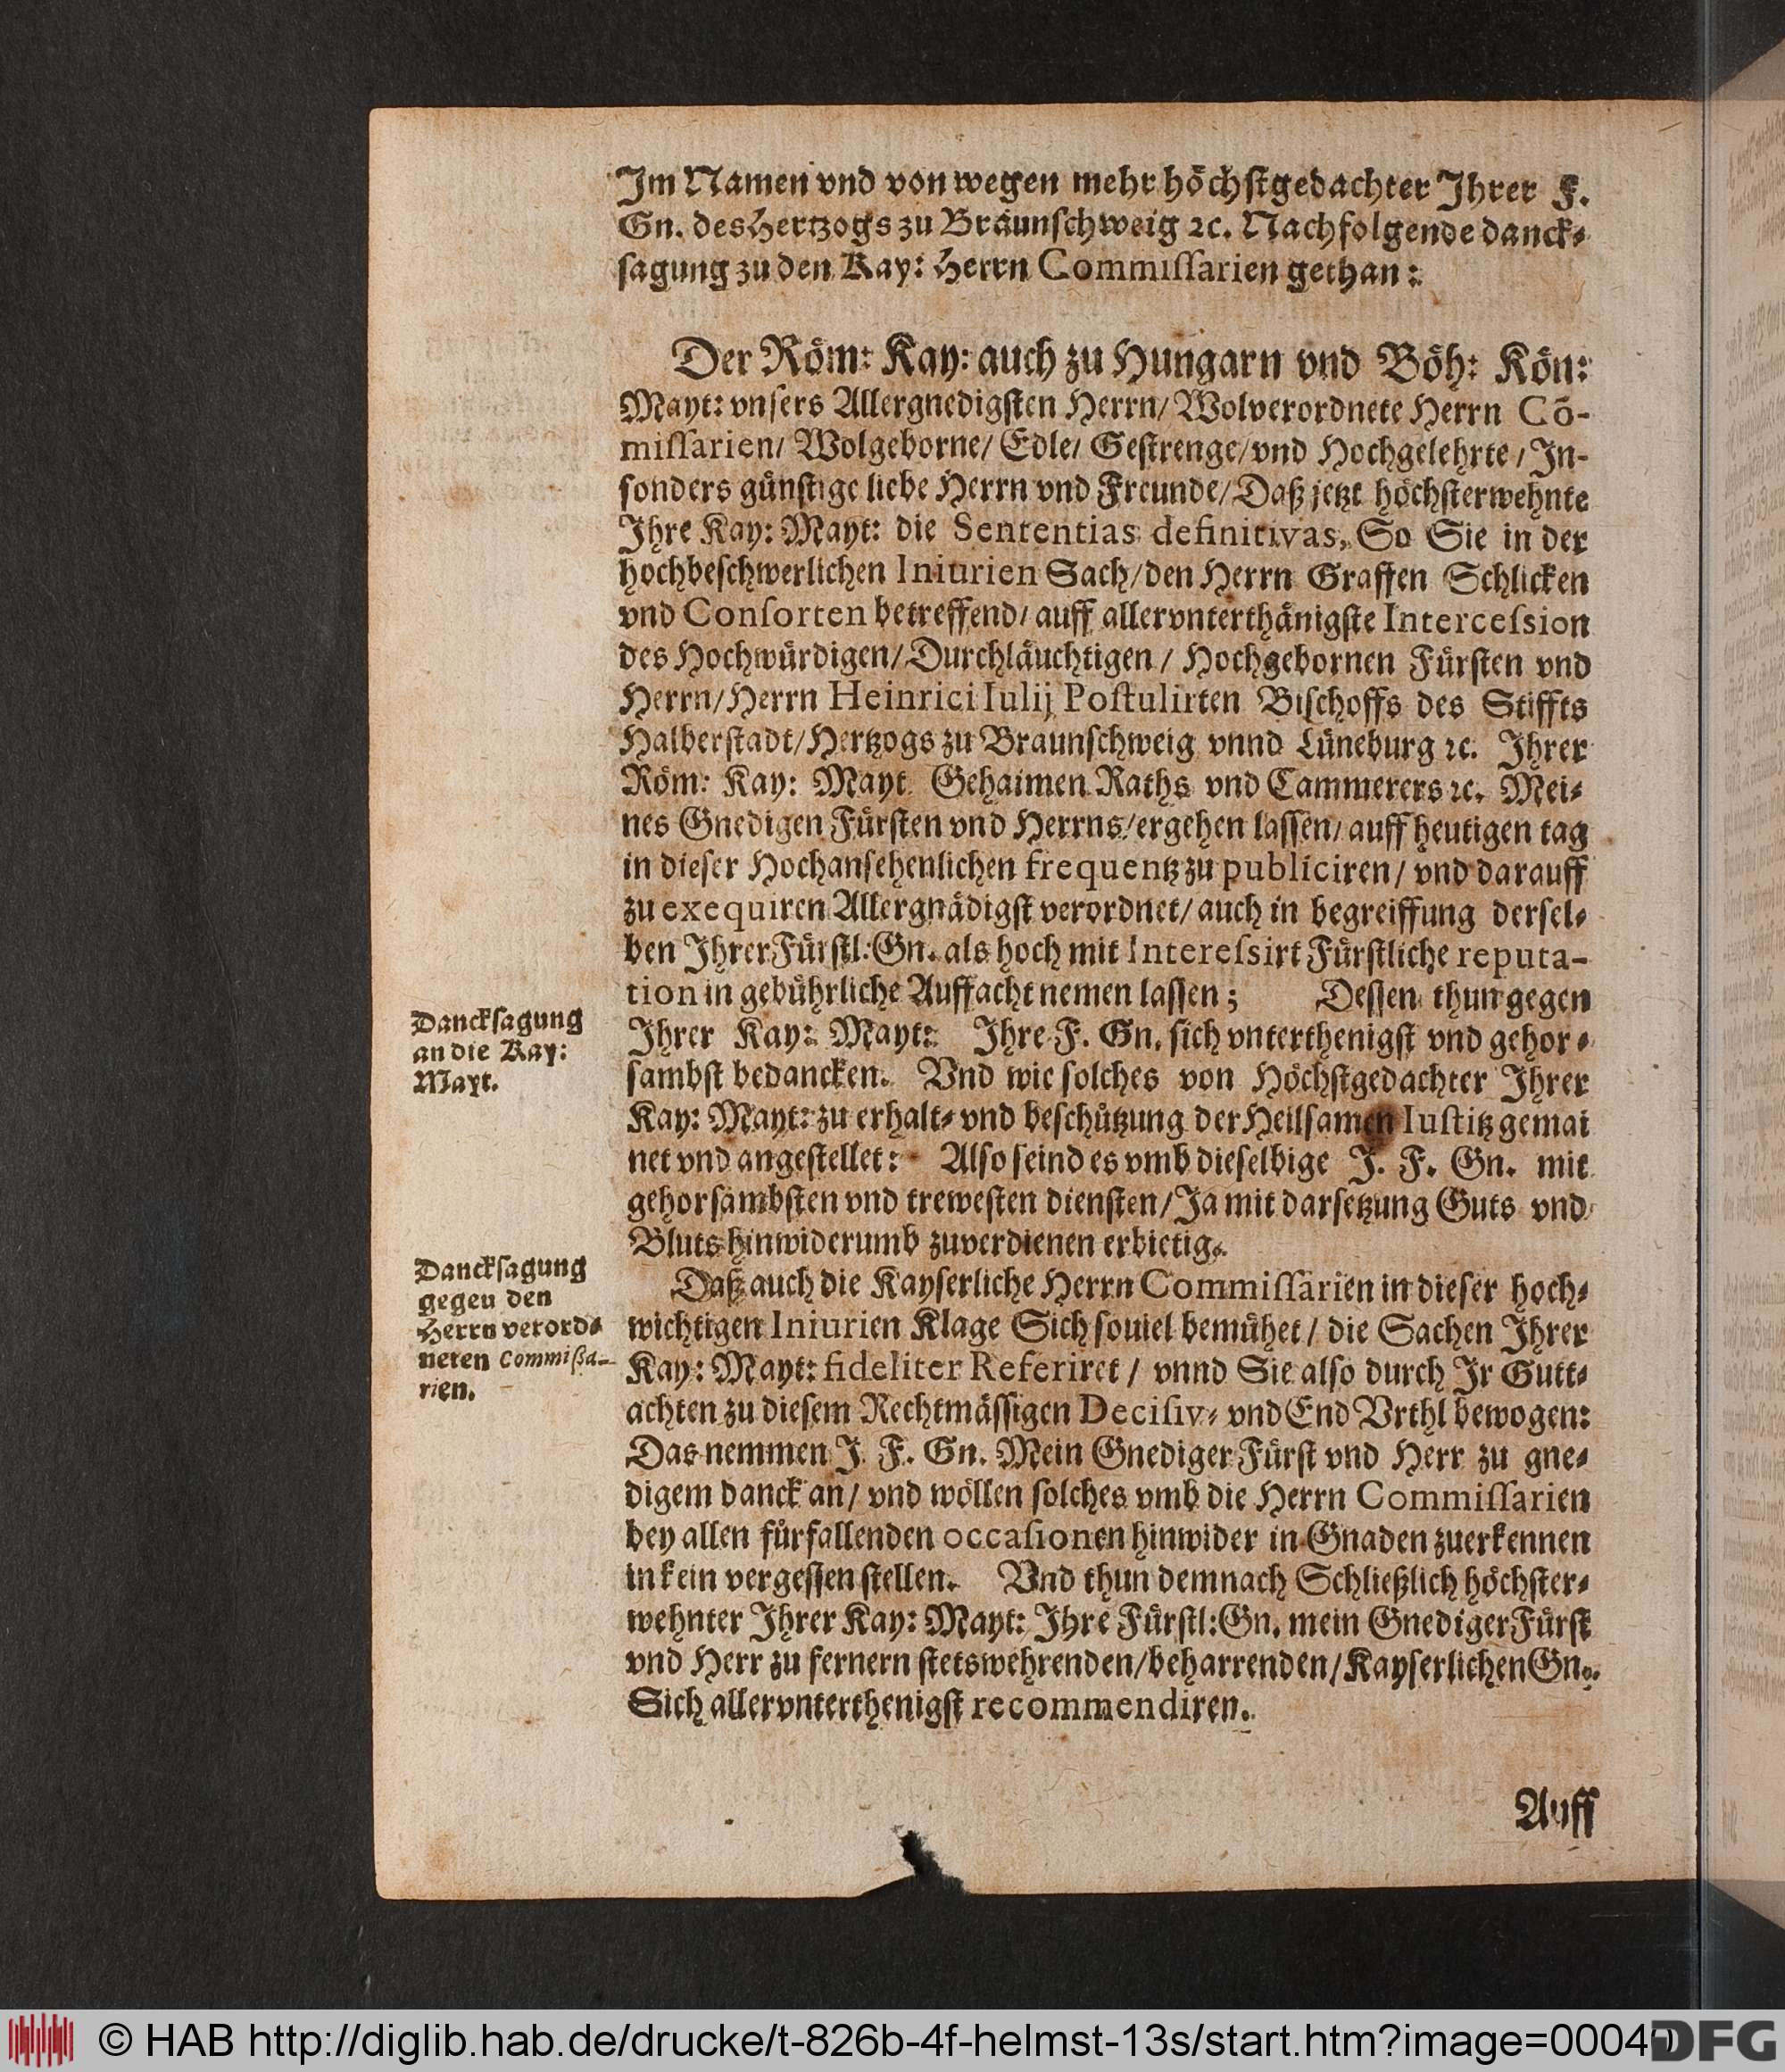 Im Namen vnd von wegen mehr höchstgedachter Ihrer F.
Gn. des Hertzogs zu Braunschweig ꝛc. Nachfolgende danck⸗
sagung zu den Kay: Herrn Commissarien gethan:
Der Röm: Kay: auch zu Hungarn vnd Böh: Kön:
Mayt: vnsers Allergnedigsten Herrn/ Wolverordnete Herrn Cõ-
missarien/ Wolgeborne/ Edle/ Gestrenge/ vnd Hochgelehrte/ In-
sonders günstige liebe Herrn vnd Freunde/ Daß jetzt höchsterwehnte
Ihre Kay: Mayt: die Sententias definitivas, So Sie in der
hochbeschwerlichen Iniurien Sach/ den Herrn Graffen Schlicken
vnd Consorten betreffend/ auff allervnterthänigste Intercession
des Hochwürdigen/ Durchläuchtigen/ Hochgebornen Fürsten vnd
Herrn/ Herrn Heinrici Iulij Postulirten Bischoffs des Stiffts
Halberstadt/ Hertzogs zu Braunschweig vnnd Lüneburg ꝛc. Ihrer
Röm: Kay: Mayt Gehaimen Raths vnd Cammerers ꝛc. Mei⸗
nes Gnedigen Fürsten vnd Herrns/ ergehen lassen/ auff heutigen tag
in dieser Hochansehenlichen frequentz zu publiciren/ vnd darauff
zu exequiren Allergnädigst verordnet/ auch in begreiffung dersel⸗
ben Ihrer Fürstl: Gn. als hoch mit Interessirt Fürstliche reputa-
tion in gebührliche Auffacht nemen lassen; Dessen thun gegen
Dancksagung
an die Kay:
Mayt.
Ihrer Kay: Mayt: Ihre F. Gn. sich vnterthenigst vnd gehor⸗
sambst bedancken. Vnd wie solches von Höchstgedachter Ihrer
Kay: Mayt: zu erhalt⸗ vnd beschützung der Heilsamen Iustitz gemai
net vnd angestellet: Also seind es vmb dieselbige J. F. Gn. mit
gehorsambsten vnd trewesten diensten/ Ja mit darsetzung Guts vnd
Bluts hinwiderumb zuverdienen erbietig.
Dancksagung
gegen den
Herrn verord⸗
neten Commissa-
rien.
Daß auch die Kayserliche Herrn Commissarien in dieser hoch⸗
wichtigen Iniurien Klage Sich souiel bemühet/ die Sachen Ihrer
Kay: Mayt: fideliter Referiret/ vnnd Sie also durch Ir Gutt⸗
achten zu diesem Rechtmässigen Decisiv⸗ vnd End Vrthl bewogen:
Das nemmen J. F. Gn. Mein Gnediger Fürst vnd Herr zu gne⸗
digem danck an/ vnd wöllen solches vmb die Herrn Commissarien
bey allen fürfallenden occasionen hinwider in Gnaden zuerkennen
in kein vergessen stellen. Vnd thun demnach Schließlich höchster⸗
wehnter Ihrer Kay: Mayt: Ihre Fürstl: Gn. mein Gnediger Fürst
vnd Herr zu fernern stetswehrenden/ beharrenden/ Kayserlichen Gn.
Sich allervnterthenigst recommendiren.
Auff
© HAB http://diglib.hab.de/drucke/t-826b-4f-helmst-13s/start.htm?image=00040
DFG